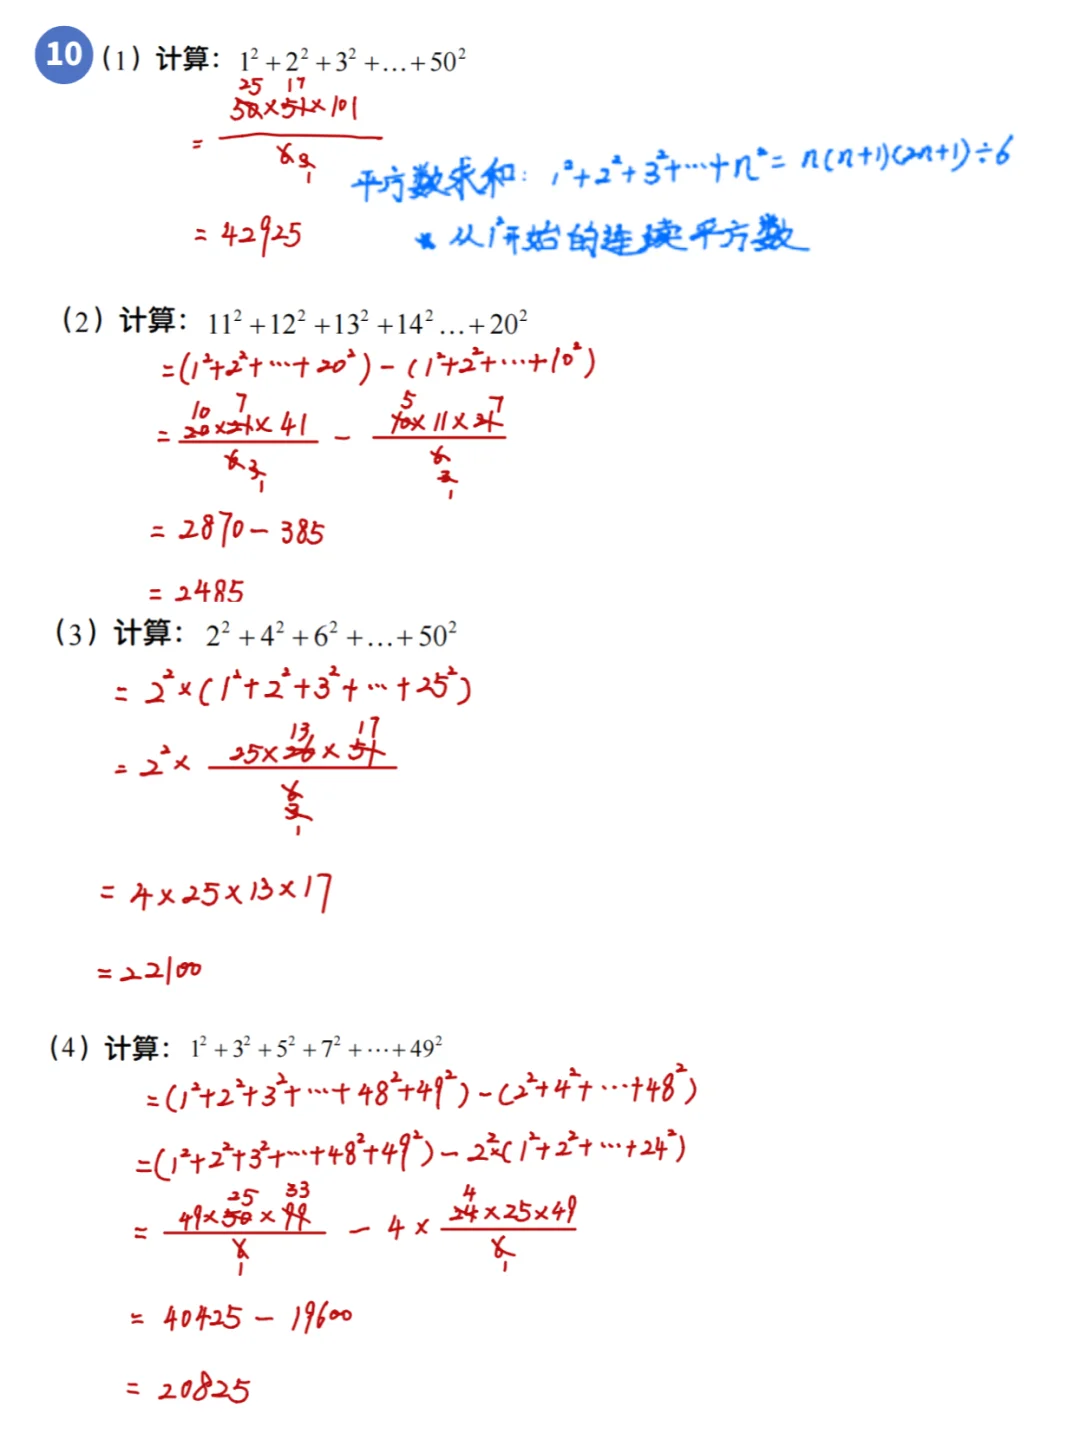 10 (1) 计算：1²+2²+3²+…+50²
25 17
= 50×51×101
6 3
1
平方数求和：1²+2²+3²+…+n²=n(n+1)(2n+1)÷6
= 42925
* 从1²开始的连续平方数
(2) 计算：11²+12²+13²+14²…+20²
=(1²+2²+…+20²)-(1²+2²+…+10²)
10 7 5 7
= 20×21×41 - 10×11×21
6 3 6
1 3
1
= 2870-385
= 2485
(3) 计算：2²+4²+6²+…+50²
= 2²×(1²+2²+3²+…+25²)
13 17
= 2²× 25×26×51
6
3
1
= 4×25×13×17
=22100
(4) 计算：1²+3²+5²+7²+⋯+49²
=(1²+2²+3²+…+48²+49²)-(2²+4²+…+48²)
=(1²+2²+3²+…+48²+49²)-2²×(1²+2²+…+24²)
25 33 4
= 49×50×99 - 4× 24×25×49
6 6
1 1
= 40425-19600
= 20825